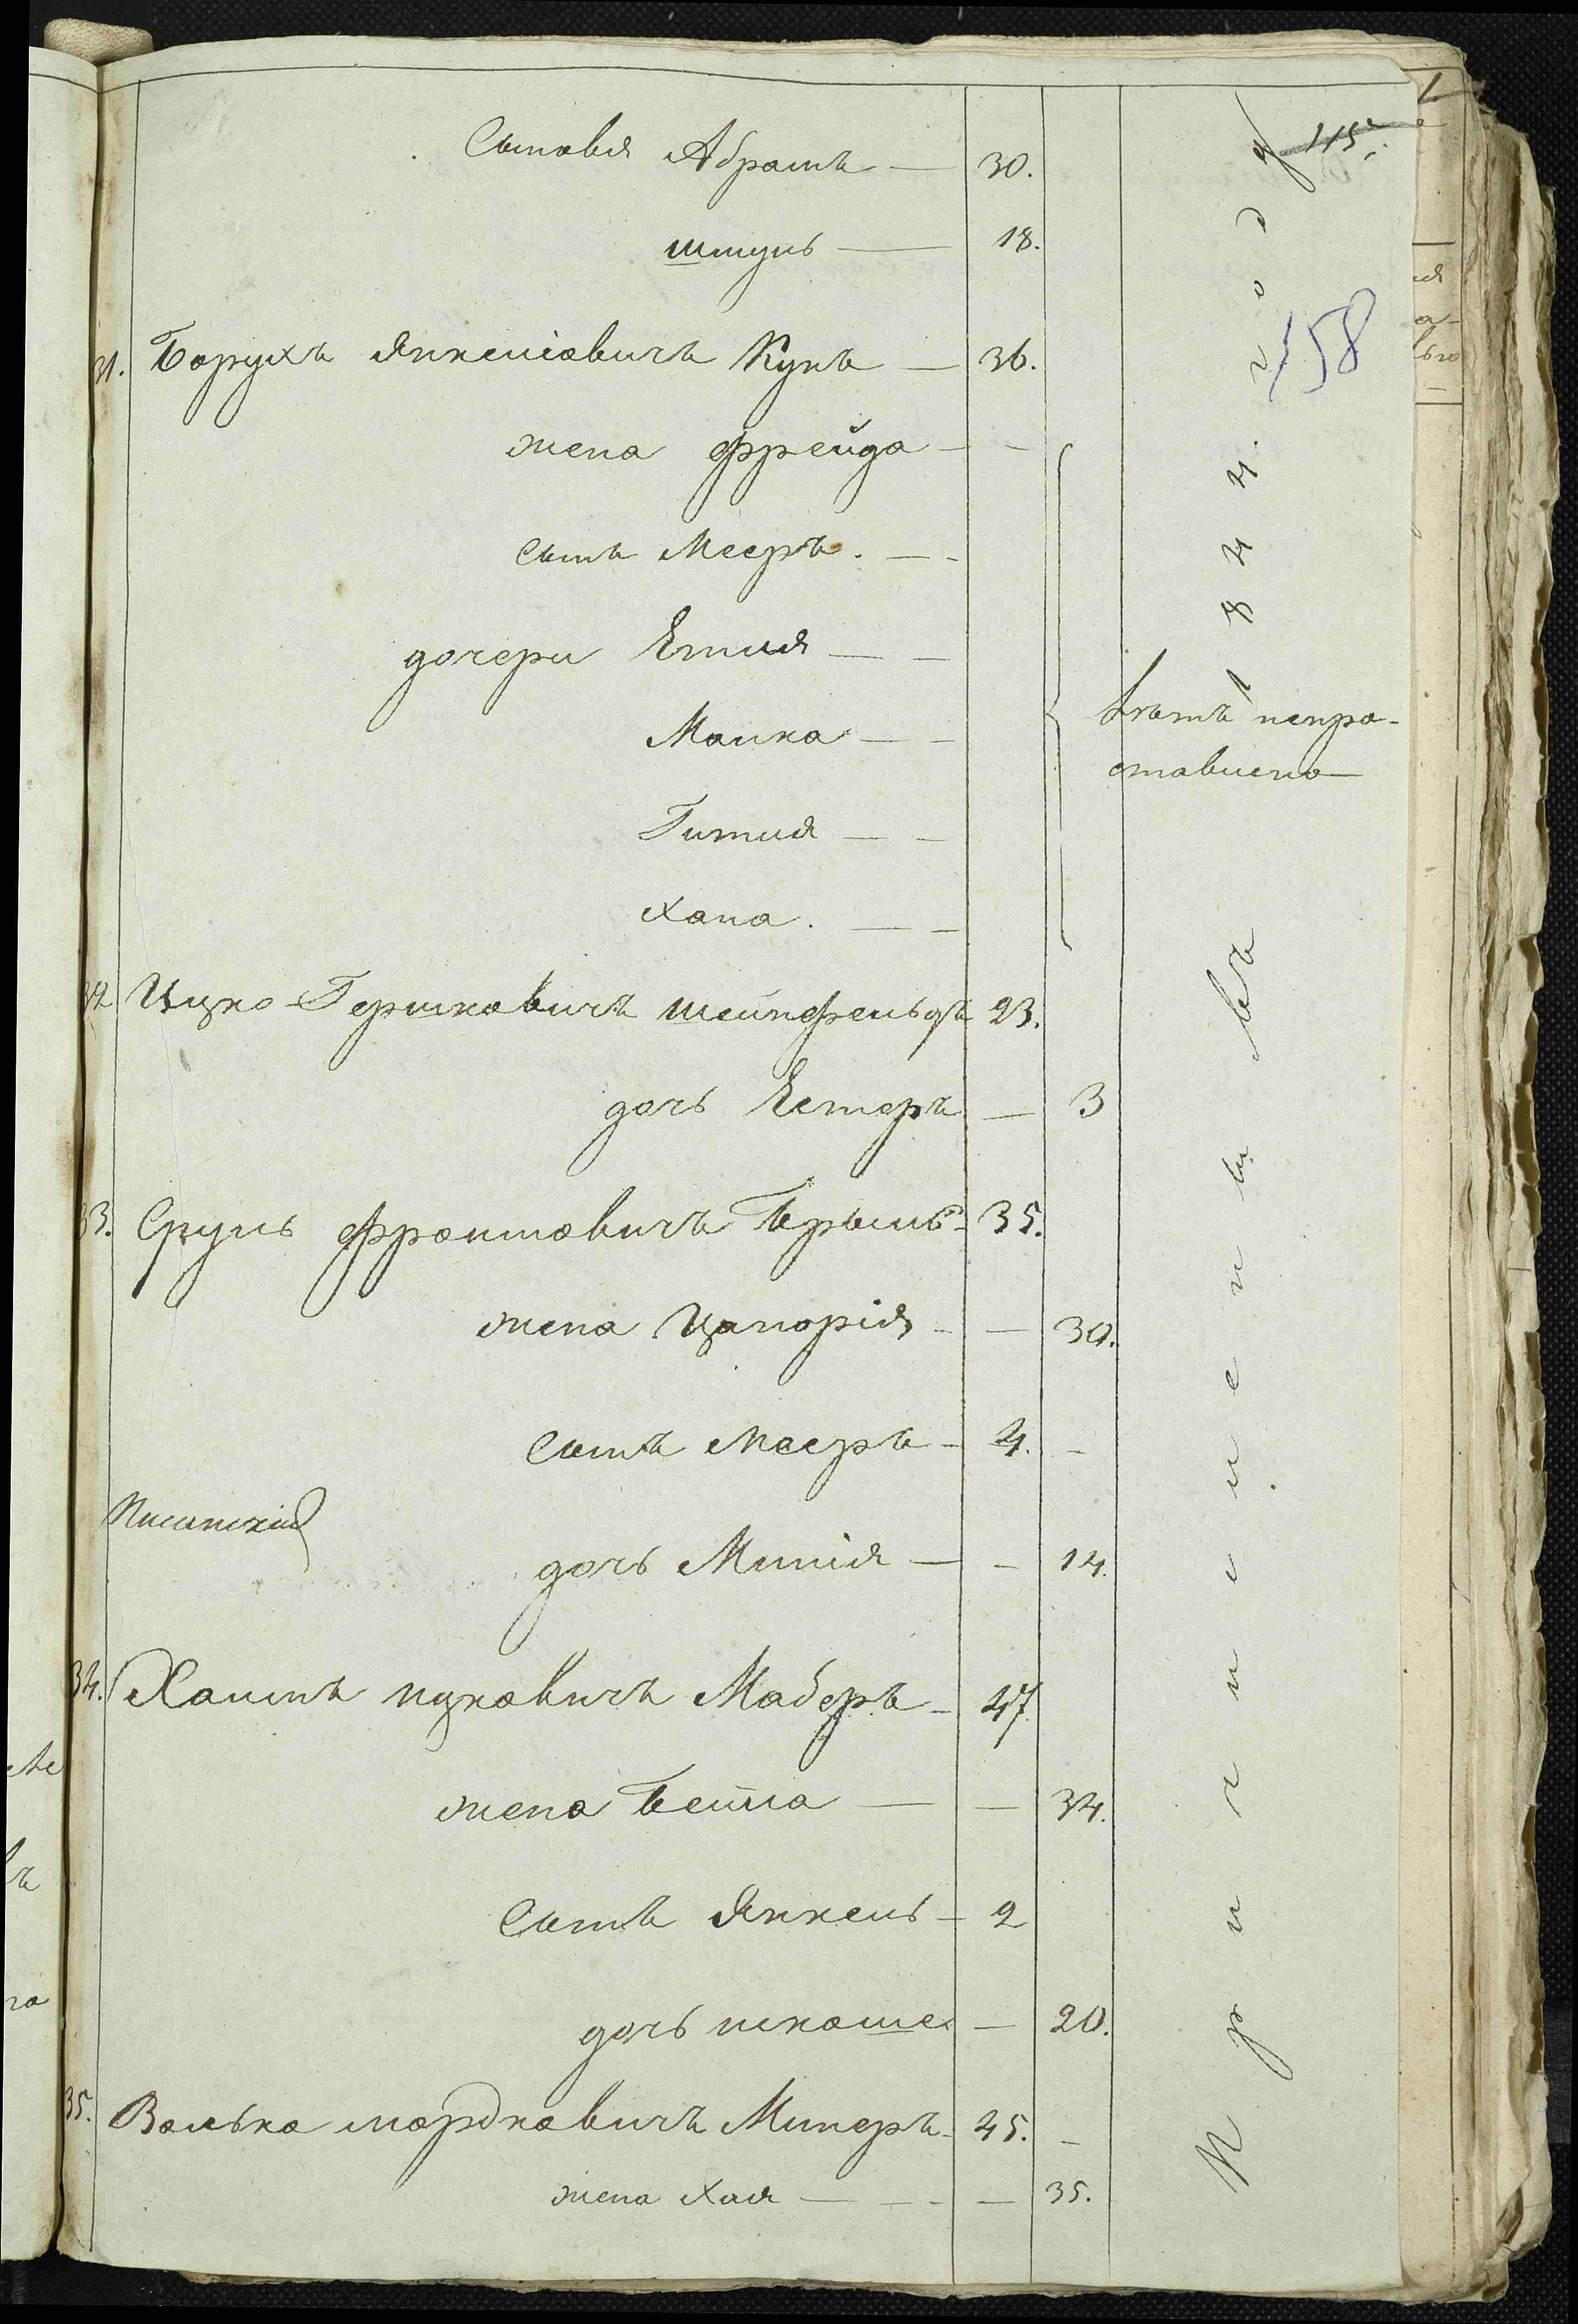 115
158
Сыновья Абрамъ — 30.
Шмуль — 18.
31. Борухъ Янкелiовичъ Кунъ — 36.
жена Фрейда — —
Сынъ Мееръ. — —
дочери Етля — —
Малка — —
Гитля — —
Хана. — —
Лѣтъ непро-
ставлено
32 Ицко Гершковичъ Шейнфельдъ 23.
дочь Естеръ — 3
33. Сруль Фроимовичъ Брыль 35.
жена Цапорiя — — 30.
Сынъ Мееръ — 4. —
дочь Минiя — — 14.
34. Хаимъ ицковичъ Маберъ — 47
жена Бейла — — 34.
Сынъ Янкель — 2
дочь — 20.
35. Волько мордковичъ Миперъ — 45. —
жена Хая — — — — 35.
Причисленныхъ въ 1844. году